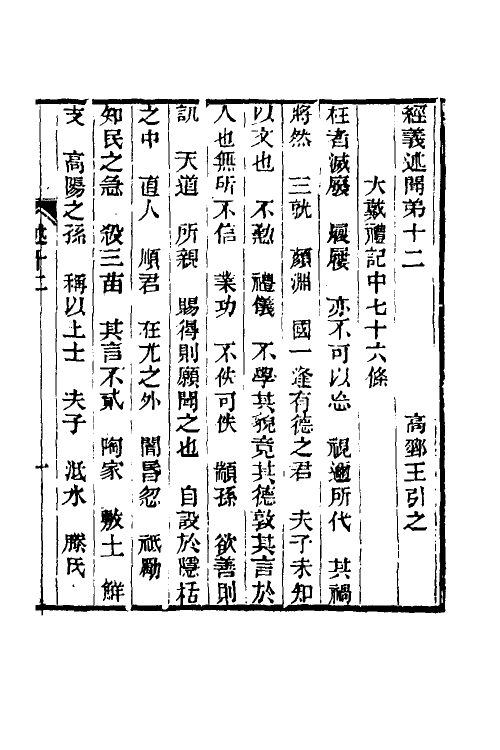 經義述聞弟十二　高郵王引之
大戴禮記中七十六條
枉者滅廢　屨屨　亦不可以忘　視邇所代　其禍
將然　三就　顏淵　國一逢有德之君　夫子未知
以文也　不懃　禮儀　不學其貌竟其德敦其言於
人也無所不信　業功　不佚可佚　顓孫　欲善則
訊　天道　所親　賜得則願聞之也　自設於隱栝
之中　直人　順君　在尤之外　闇昬忽　祇勵
知民之急　殺三苗　其言不貳　陶家　敷土　鮮
支　高陽之孫　稱以上士　夫子　泜水　滕氏
述十二　一